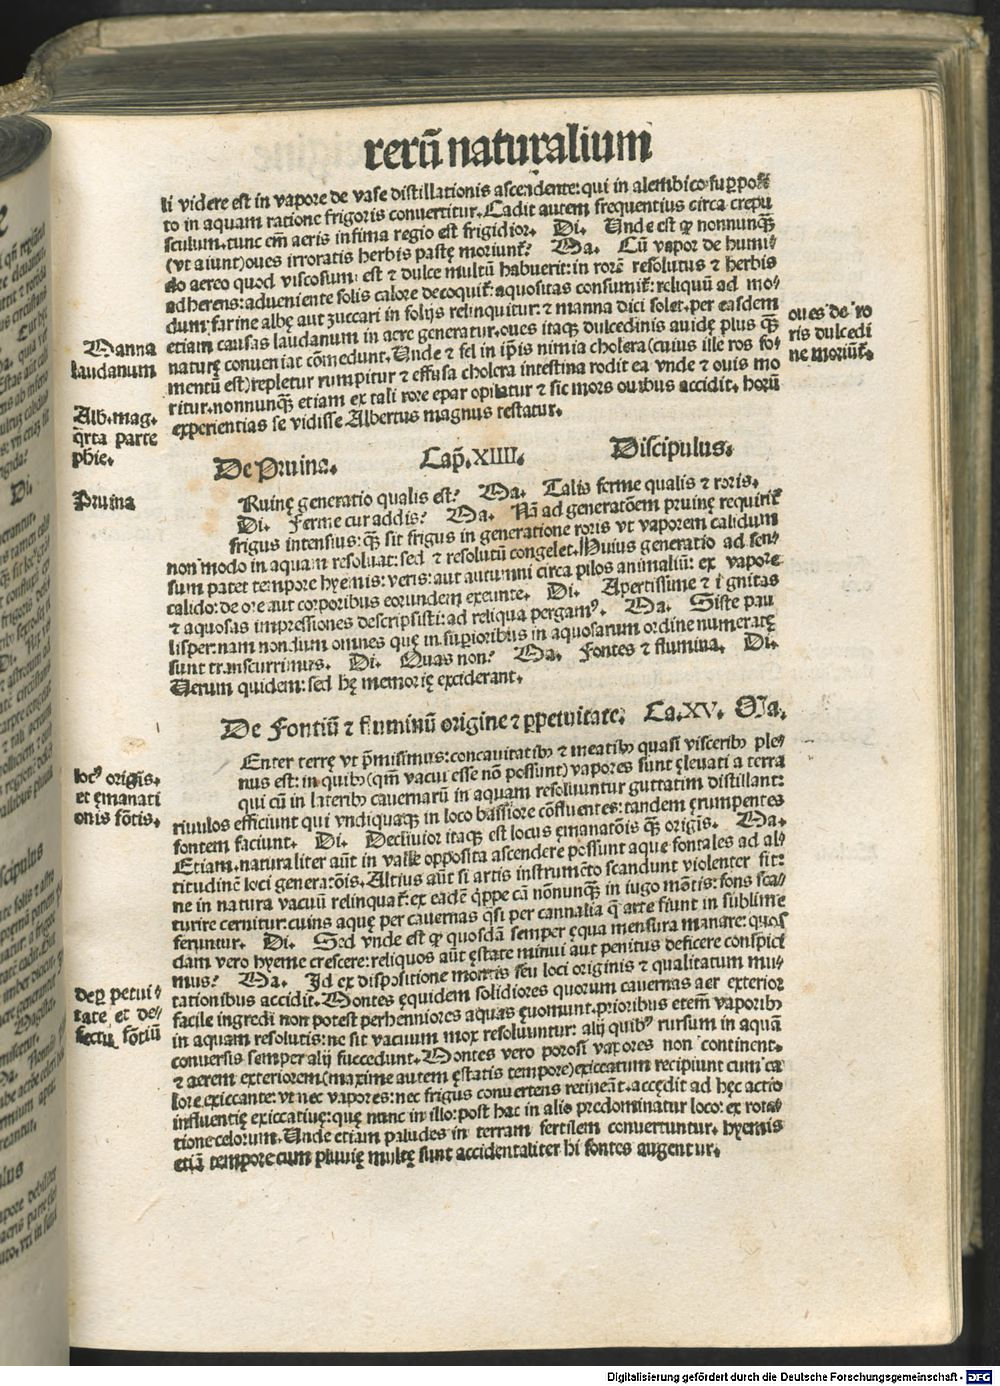 rerū naturalium
li videre est in vapore de vase distillationis ascendente: qui in alembico suꝑposi
to in aquam ratione frigoris conuertitur. Cadit autem frequentius circa crepu
sculum. tunc em̄ aeris infima regio est frigidior. Di. Unde est ꝙ nonnunqꝫ
(vt aiunt) oues irroratis herbis pastę moriunt᷑? Ma. Cū vapor de humi⸗
do aereo quod viscosum est ⁊ dulce multū habuerit: in rorē resolutus ⁊ herbis
adherens: adueniente solis calore decoquit᷑: aquositas consumit᷑: reliquū ad mo⸗
dum farine albę aut zuccari in folijs relinquitur: ⁊ manna dici solet. per easdem
etiam causas laudanum in aere generatur. oues itaqꝫ dulcedinis auidę plus qꝫ
naturę conueniat cōmedunt. Unde ⁊ fel in ip̄is nimia cholera (cuius ille ros fo⸗
mentū est) repletur rumpitur ⁊ effusa cholera intestina rodit ea vnde ⁊ ouis mo
ritur. nonnunqꝫ etiam ex tali rore epar opilatur ⁊ sic mors ouibus accidit. horū
experientias se vidisse Albertus magnus testatur.
oues de ro
ris dulcedi
ne moriūt᷑.
Manna
laudanum
Alb. mag.
q̄rta parte
phie.
De Pruina. Cap̄. XIIII. Discipulus.
Pruina
Ruinę generatio qualis est? Ma. Talis ferme qualis ⁊ roris.
Di. Ferme cur addis? Ma. Nā ad generatōem pruinę requirit᷑
frigus intensius: qꝫ sit frigus in generatione roris vt vaporem calidum
non modo in aquam resoluat: sed ⁊ resolutū congelet. Huius generatio ad sen⸗
sum patet tempore hyemis: veris: aut autumni circa pilos animaliū: ex vapore
calido: de ore aut corporibus eorundem exeunte. Di. Apertissime ⁊ ignitas
⁊ aquosas impressiones descripsisti: ad reliqua pergamꝰ. Ma. Siste pau
lisper: nam nondum omnes quę in suꝑioribus in aquosarum ordine numeratę
sunt transcurrimus. Di. Quas non? Ma. Fontes ⁊ flumina. Di.
Uerum quidem: sed hę memorię exciderant.
De Fontiū ⁊ fluminū origine ⁊ ꝑpetuitate. Ca. XV. Ma.
Enter terrę vt p̄misimus: concauitatibꝰ ⁊ meatibꝰ quasi visceribꝰ ple⸗
nus est: in quibꝰ (qm̄ vacui esse nō possunt) vapores sunt ęleuati a terra
qui cū in lateribꝰ cauernarū in aquam resoluuntur guttatim distillant:
riuulos efficiunt qui vndiquaqꝫ in loco bassiore cōfluentes: tandem ęrumpentes
fontem faciunt. Di. Decliuior itaqꝫ est locus ęmanatōis qꝫ origīs. Ma.
Etiam. naturaliter aūt in valle opposita ascendere possunt aque fontales ad al⸗
titudinē loci generatōis. Altius aūt si artis instrumēto scandunt violenter fit:
ne in natura vacuū relinquat᷑: ex eadē q̄ppe cā nōnunqꝫ in iugo mōtis: fons sca⸗
turire cernitur: cuius aquę per cauernas q̄si per cannalia q̄ arte fiunt in sublime
feruntur. Di. Sed vnde est ꝙ quosdā semper ęqua mensura manare: quos
dam vero hyeme crescere: reliquos aūt ęstate minui aut penitus deficere conspici
mus? Ma. Id ex dispositione montis seu loci originis ⁊ qualitatum mu⸗
tationibus accidit. Montes ęquidem solidiores quorum cauernas aer exterior
facile ingredi non potest perhenniores aquas ęuomunt. prioribus etem̄ vaporibꝰ
in aquam resolutis: ne sit vacuum mox resoluuntur: alij quibꝰ rursum in aquā
conuersis semper alij succedunt. Montes vero porosi vapores non continent.
⁊ aerem exteriorem (maxime autem ęstatis tempore) exiccatum recipiunt cum ca
lore exiccante: vt nec vapores: nec frigus conuertens retineāt. accędit ad hęc actio
influentię exiccatiuę: quę nunc in illo: post hac in alio predominatur loco: ex rota⸗
tione celorum. Unde etiam paludes in terram fertilem conuertuntur. hyemis
etiā tempore cum pluuię multę sunt accidentaliter hi fontes augentur.
locꝰ origīs.
et ęmanati
onis fōtis.
de ꝑpetui⸗
tate et de⸗
fectu fōtiū
Digitalisierung gefördert durch die Deutsche Forschungsgemeinschaft - DFG